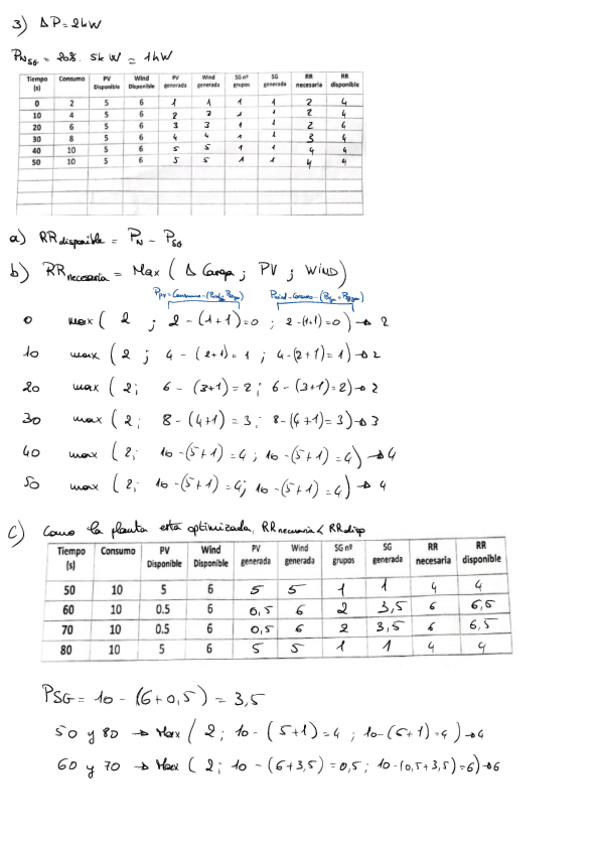 3) ΔP = 2kW
PN_SG = 20%. 5kW = 1kW
Tiempo (s) Consumo PV Disponible Wind Disponible PV generada Wind generada SG nº grupos SG generada RR necesaria RR disponible
0 2 5 6 1 1 1 1 2 4
10 4 5 6 2 2 1 1 2 4
20 6 5 6 3 3 1 1 2 4
30 8 5 6 4 4 1 1 3 4
40 10 5 6 5 5 1 1 4 4
50 10 5 6 5 5 1 1 4 4
a) RRdisponible = PN - PSG
b) RRnecesaria = Max ( Δ Carga ; PV ; WIND)
0 max ( 2 ; 2 - (1+1) = 0 ; 2 - (1+1) = 0) → 2
10 max ( 2 ; 4 - (2+1) = 1 ; 4 - (2+1) = 1) → 2
20 max ( 2 ; 6 - (3+1) = 2 ; 6 - (3+1) = 2) → 2
30 max ( 2 ; 8 - (4+1) = 3 ; 8 - (4+1) = 3) → 3
40 max ( 2 ; 10 - (5+1) = 4 ; 10 - (5+1) = 4) → 4
50 max ( 2 ; 10 - (5+1) = 4 ; 10 - (5+1) = 4) → 4
c) Como la planta está optimizada, RRnecesaria < RRdisp
Tiempo (s) Consumo PV Disponible Wind Disponible PV generada Wind generada SG nº grupos SG generada RR necesaria RR disponible
50 10 5 6 5 5 1 1 4 4
60 10 0.5 6 0,5 6 2 3,5 6 6,5
70 10 0.5 6 0,5 6 2 3,5 6 6,5
80 10 5 6 5 5 1 1 4 4
PSG = 10 - (6 + 0,5) = 3,5
50 y 80 → Max ( 2 ; 10 - (5+1) = 4 ; 10 - (5+1) = 4 ) → 4
60 y 70 → Max ( 2 ; 10 - (6+3,5) = 0,5 ; 10 - (0,5+3,5) = 6) → 6